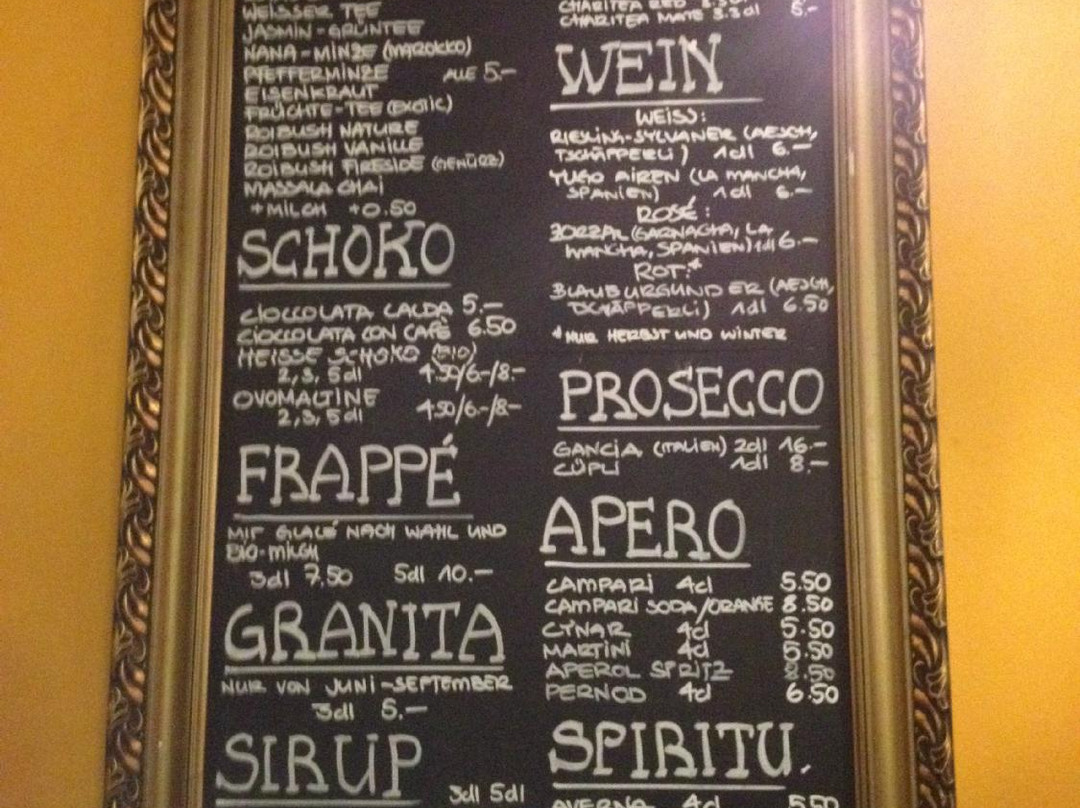 WEISSER TEE
JASMIN-GRÜNTEE
NANA-MINZE (MAROKKO)
PFEFFERMINZE ALLE 5.–
EISENKRAUT
FRÜCHTE-TEE (EXOTIC)
ROIBUSH NATURE
ROIBUSH VANILLE
ROIBUSH FIRESIDE (GEWÜRZ)
MASSALA CHAI
+MILCH +0.50
SCHOKO
CIOCCOLATA CALDA 5.–
CIOCCOLATA CON CAFÈ 6.50
HEISSE SCHOKO (BIO)
2,3,5dl 4.50/6.-/8.-
OVOMALTINE
2,3,5dl 4.50/6.-/8.-
FRAPPÉ
MIT GLACÉ NACH WAHL UND
BIO-MILCH
3dl 7.50 5dl 10.–
GRANITA
NUR VON JUNI-SEPTEMBER
3dl 5.–
SIRUP 3dl 5dl
CHARITEA RED 3.3dl
CHARITEA MATE 3.3dl 5.–
WEIN
WEISS:
RIESLING-SYLVANER (AESCH,
TSCHÄPPERLI) 1dl 6.–
YUGO AIREN (LA MANCHA,
SPANIEN) 1dl 6.–
ROSÉ:
(GARNACHA, LA
MANCHA, SPANIEN) 1dl 6.–
ROT:*
BLAUBURGUNDER (AESCH,
TSCHÄPPERLI) 1dl 6.50
*NUR HERBST UND WINTER
PROSECCO
GANCIA (ITALIEN) 2dl 16.–
CÜPLI 1dl 8.–
APERO
CAMPARI 4cl 5.50
CAMPARI SODA/ORANGE 8.50
CYNAR 4cl 5.50
MARTINI 4cl 5.50
APEROL SPRITZ 8.50
PERNOD 4cl 6.50
SPIRITU.
AVERNA 4cl 5.50